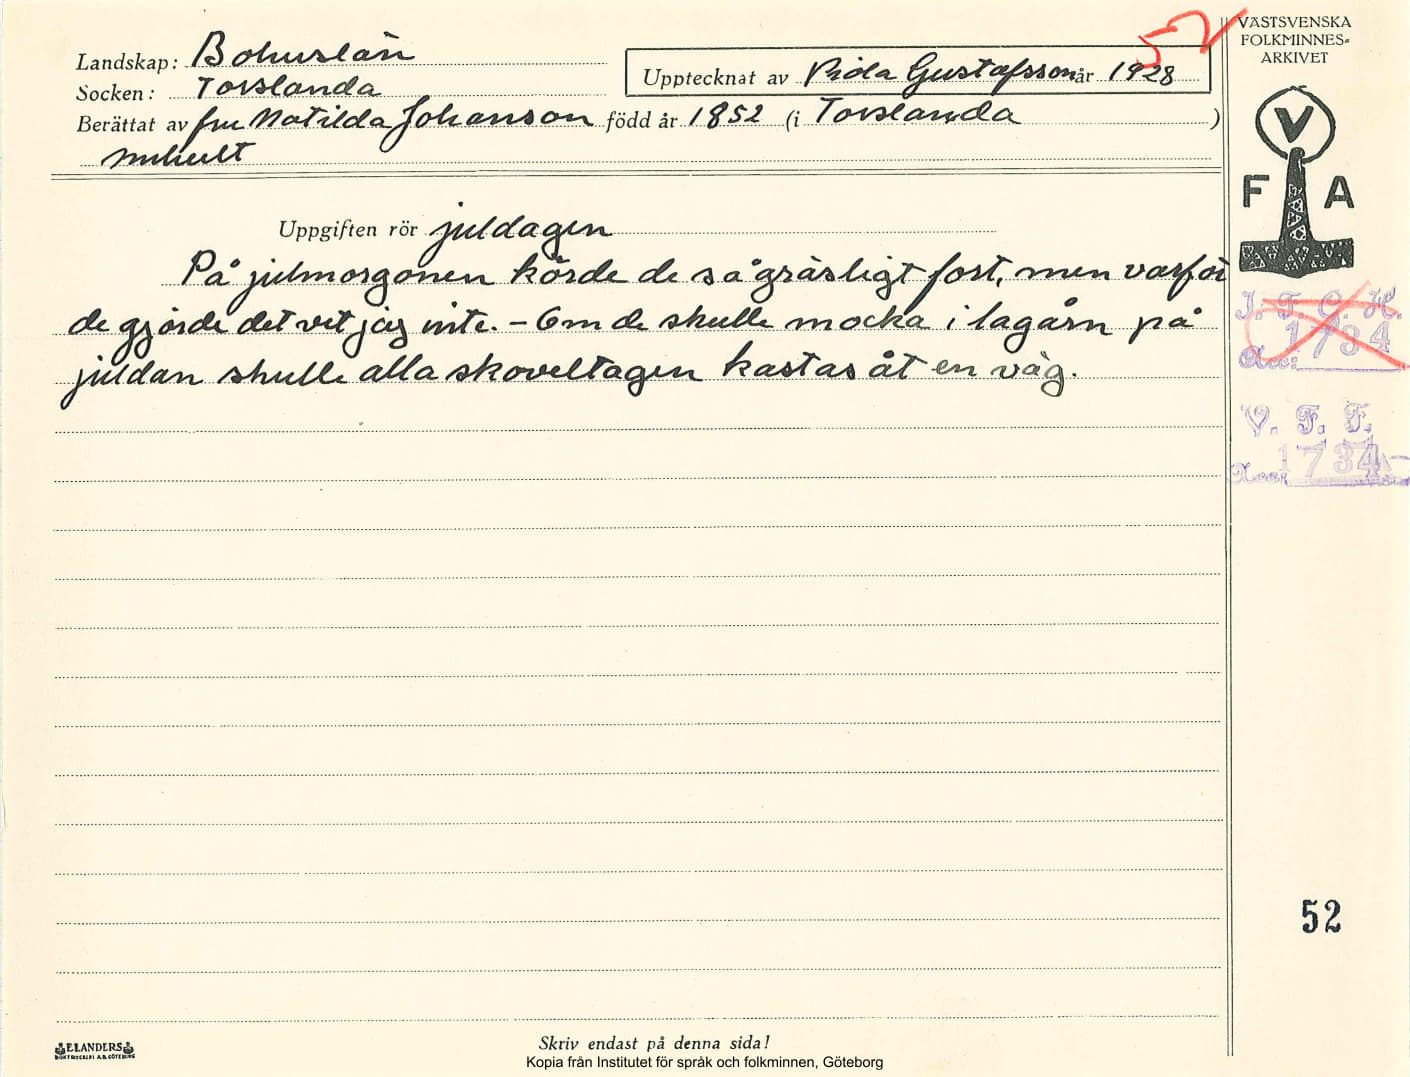 Landskap: Bohuslän
Socken: Torslanda
Upptecknat av Viola Gustafsson år 1928
52
Berättat av fru Matilda Johanson född år 1852 (i Torslanda)
Uppgiften rör juldagen
På julmorgonen körde de så gräsligt fort, men varför
de gjorde det vet jag inte. – Om de skulle mocka i lagårn på
juldan skulle alla skoveltagen kastas åt en väg.
VÄSTSVENSKA
FOLKMINNES-
ARKIVET
V
F A
I. F. G. H.
1734
Acc:
V. F. F.
Acc: 1734
52
ELANDERS
BOKTRYCKERI A.B. GÖTEBORG
Skriv endast på denna sida!
Kopia från Institutet för språk och folkminnen, Göteborg